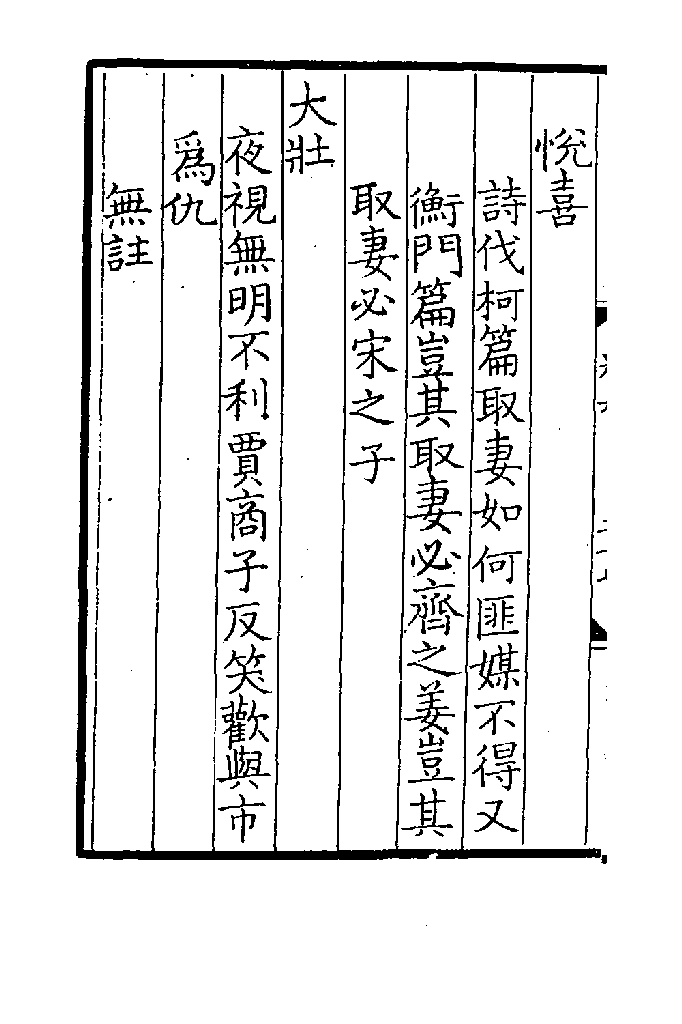 悅喜
詩伐柯篇取妻如何匪媒不得又
衡門篇豈其取妻必齊之姜豈其
取妻必宋之子
大壯
夜視無明不利賈商子反笑歡與市
爲仇
無註